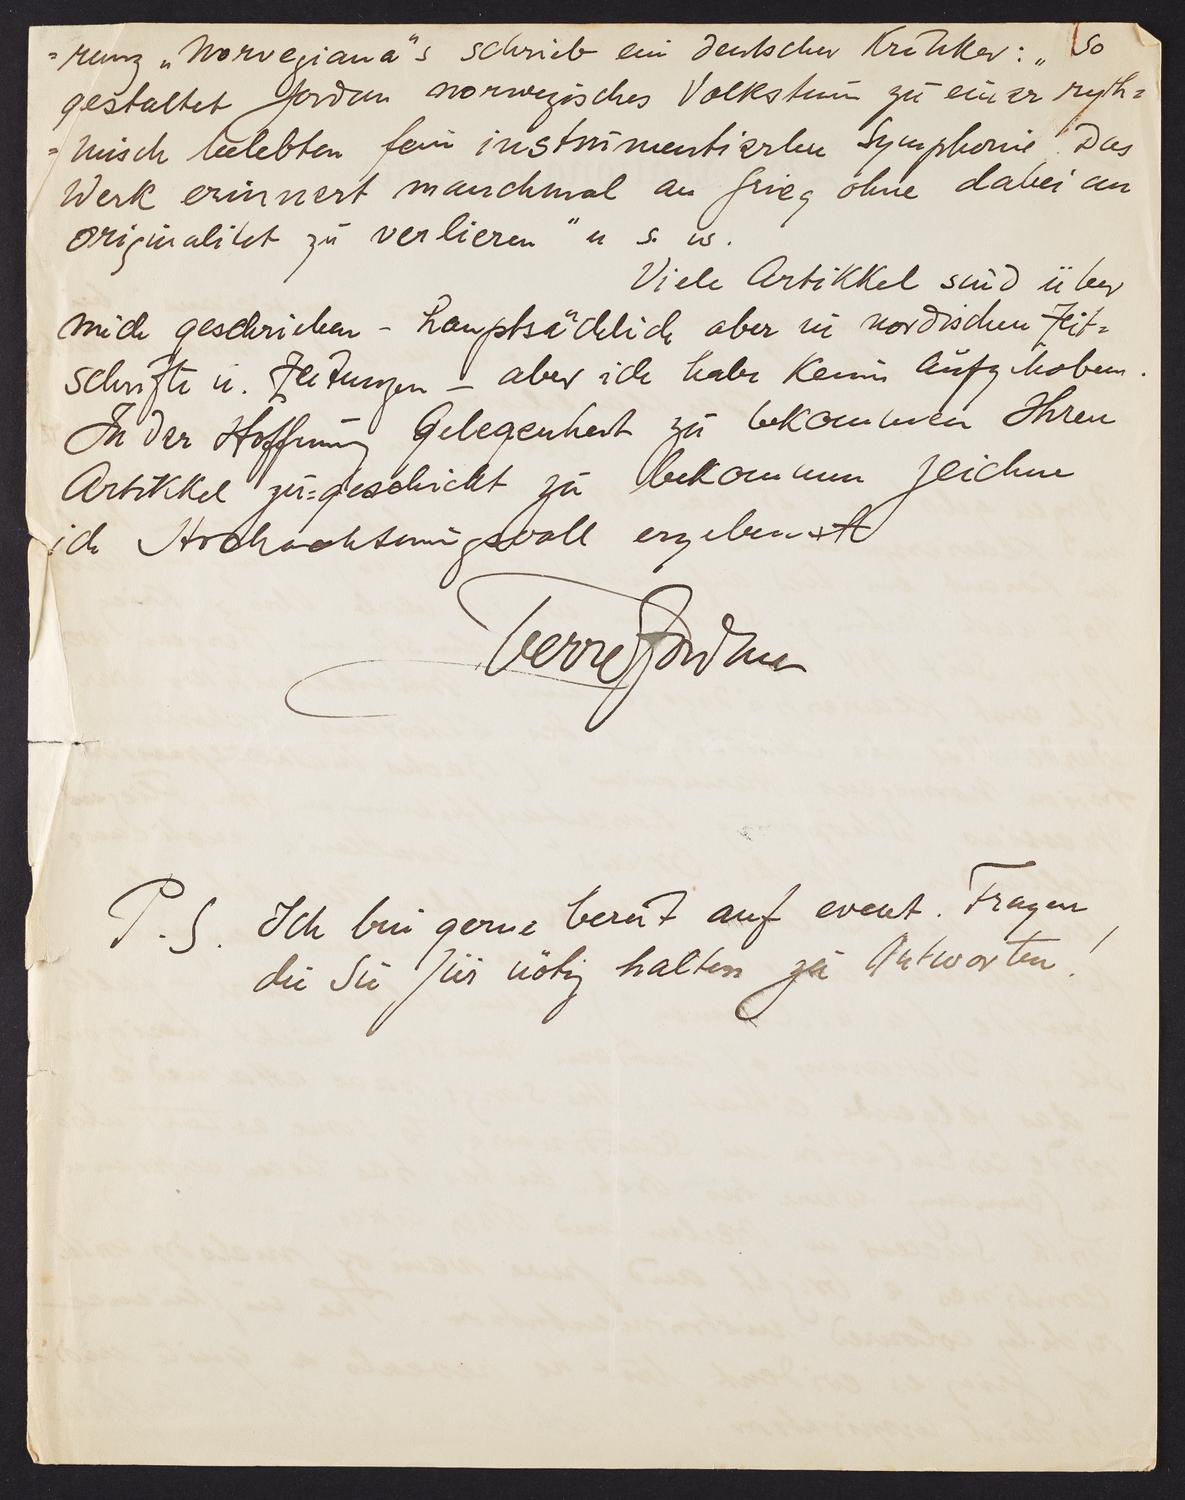 =rung „Norvegiana"s schrieb ein deutscher Kritiker: „So
gestaltet Jordan norwegisches Volkstum zu einer ryth=
=misch belebten fein instrumentierten Symphonie. Das
Werk erinnert manchmal an Grieg ohne dabei an
originalität zu verlieren" u s. w.
Viele Artikkel sind über
mich geschrieben – hauptsächlich aber in nordischen Zeit=
schrifte u. Zeitungen – aber ich habe keine aufgehoben.
In der Hoffnung Gelegenheit zu bekommen Ihren
Artikkel zu=geschickt zu bekommen zeichne
ich Hochachtungsvoll ergebenst
Sverre Jordan
P.S. Ich bin gerne bereit auf event. Fragen
die Sie für nötig halten zu Antworten!